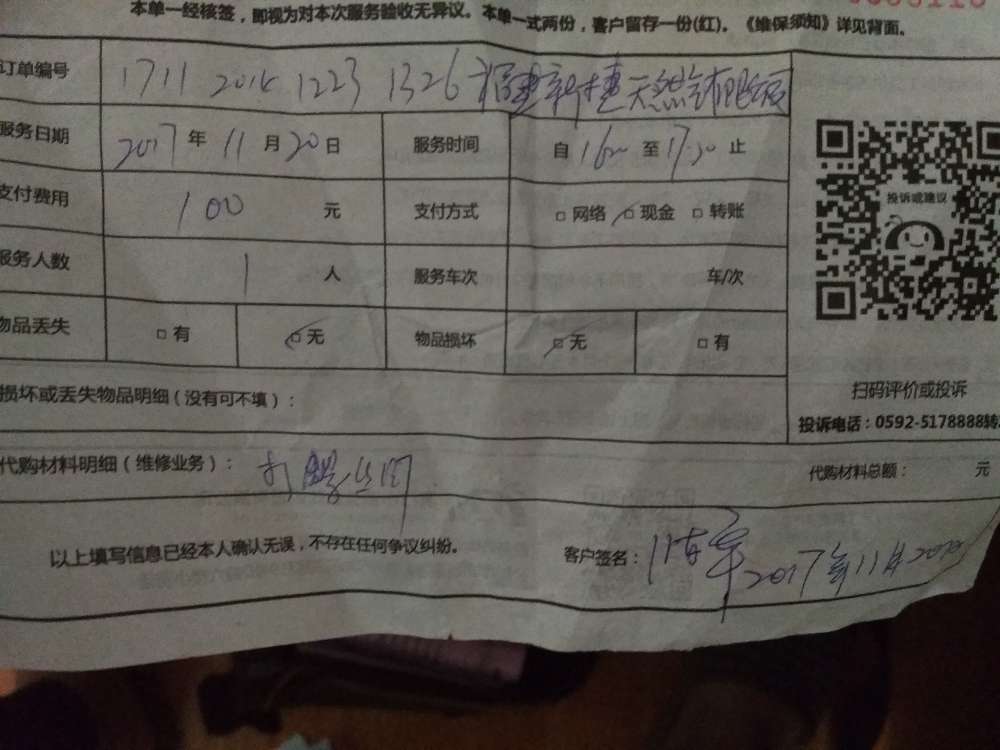 本单一经核签，即视为对本次服务验收无异议。本单一式两份，客户留存一份(红)。《维保须知》详见背面。
订单编号 1711 2014 1223 1326 福建新捷天然气有限公司
服务日期 2017 年 11 月 20 日 服务时间 自 1620 至 17:30 止
支付费用 100 元 支付方式 □ 网络 □ 现金 □ 转账
服务人数 1 人 服务车次 车/次
物品丢失 □ 有 □ 无 物品损坏 □ 无 □ 有
投诉或建议
损坏或丢失物品明细（没有可不填）：
扫码评价或投诉
投诉电话：0592-5178888转
代购材料明细（维修业务）：
代购材料总额： 元
以上填写信息已经本人确认无误，不存在任何争议纠纷。
客户签名： 2017年11月20